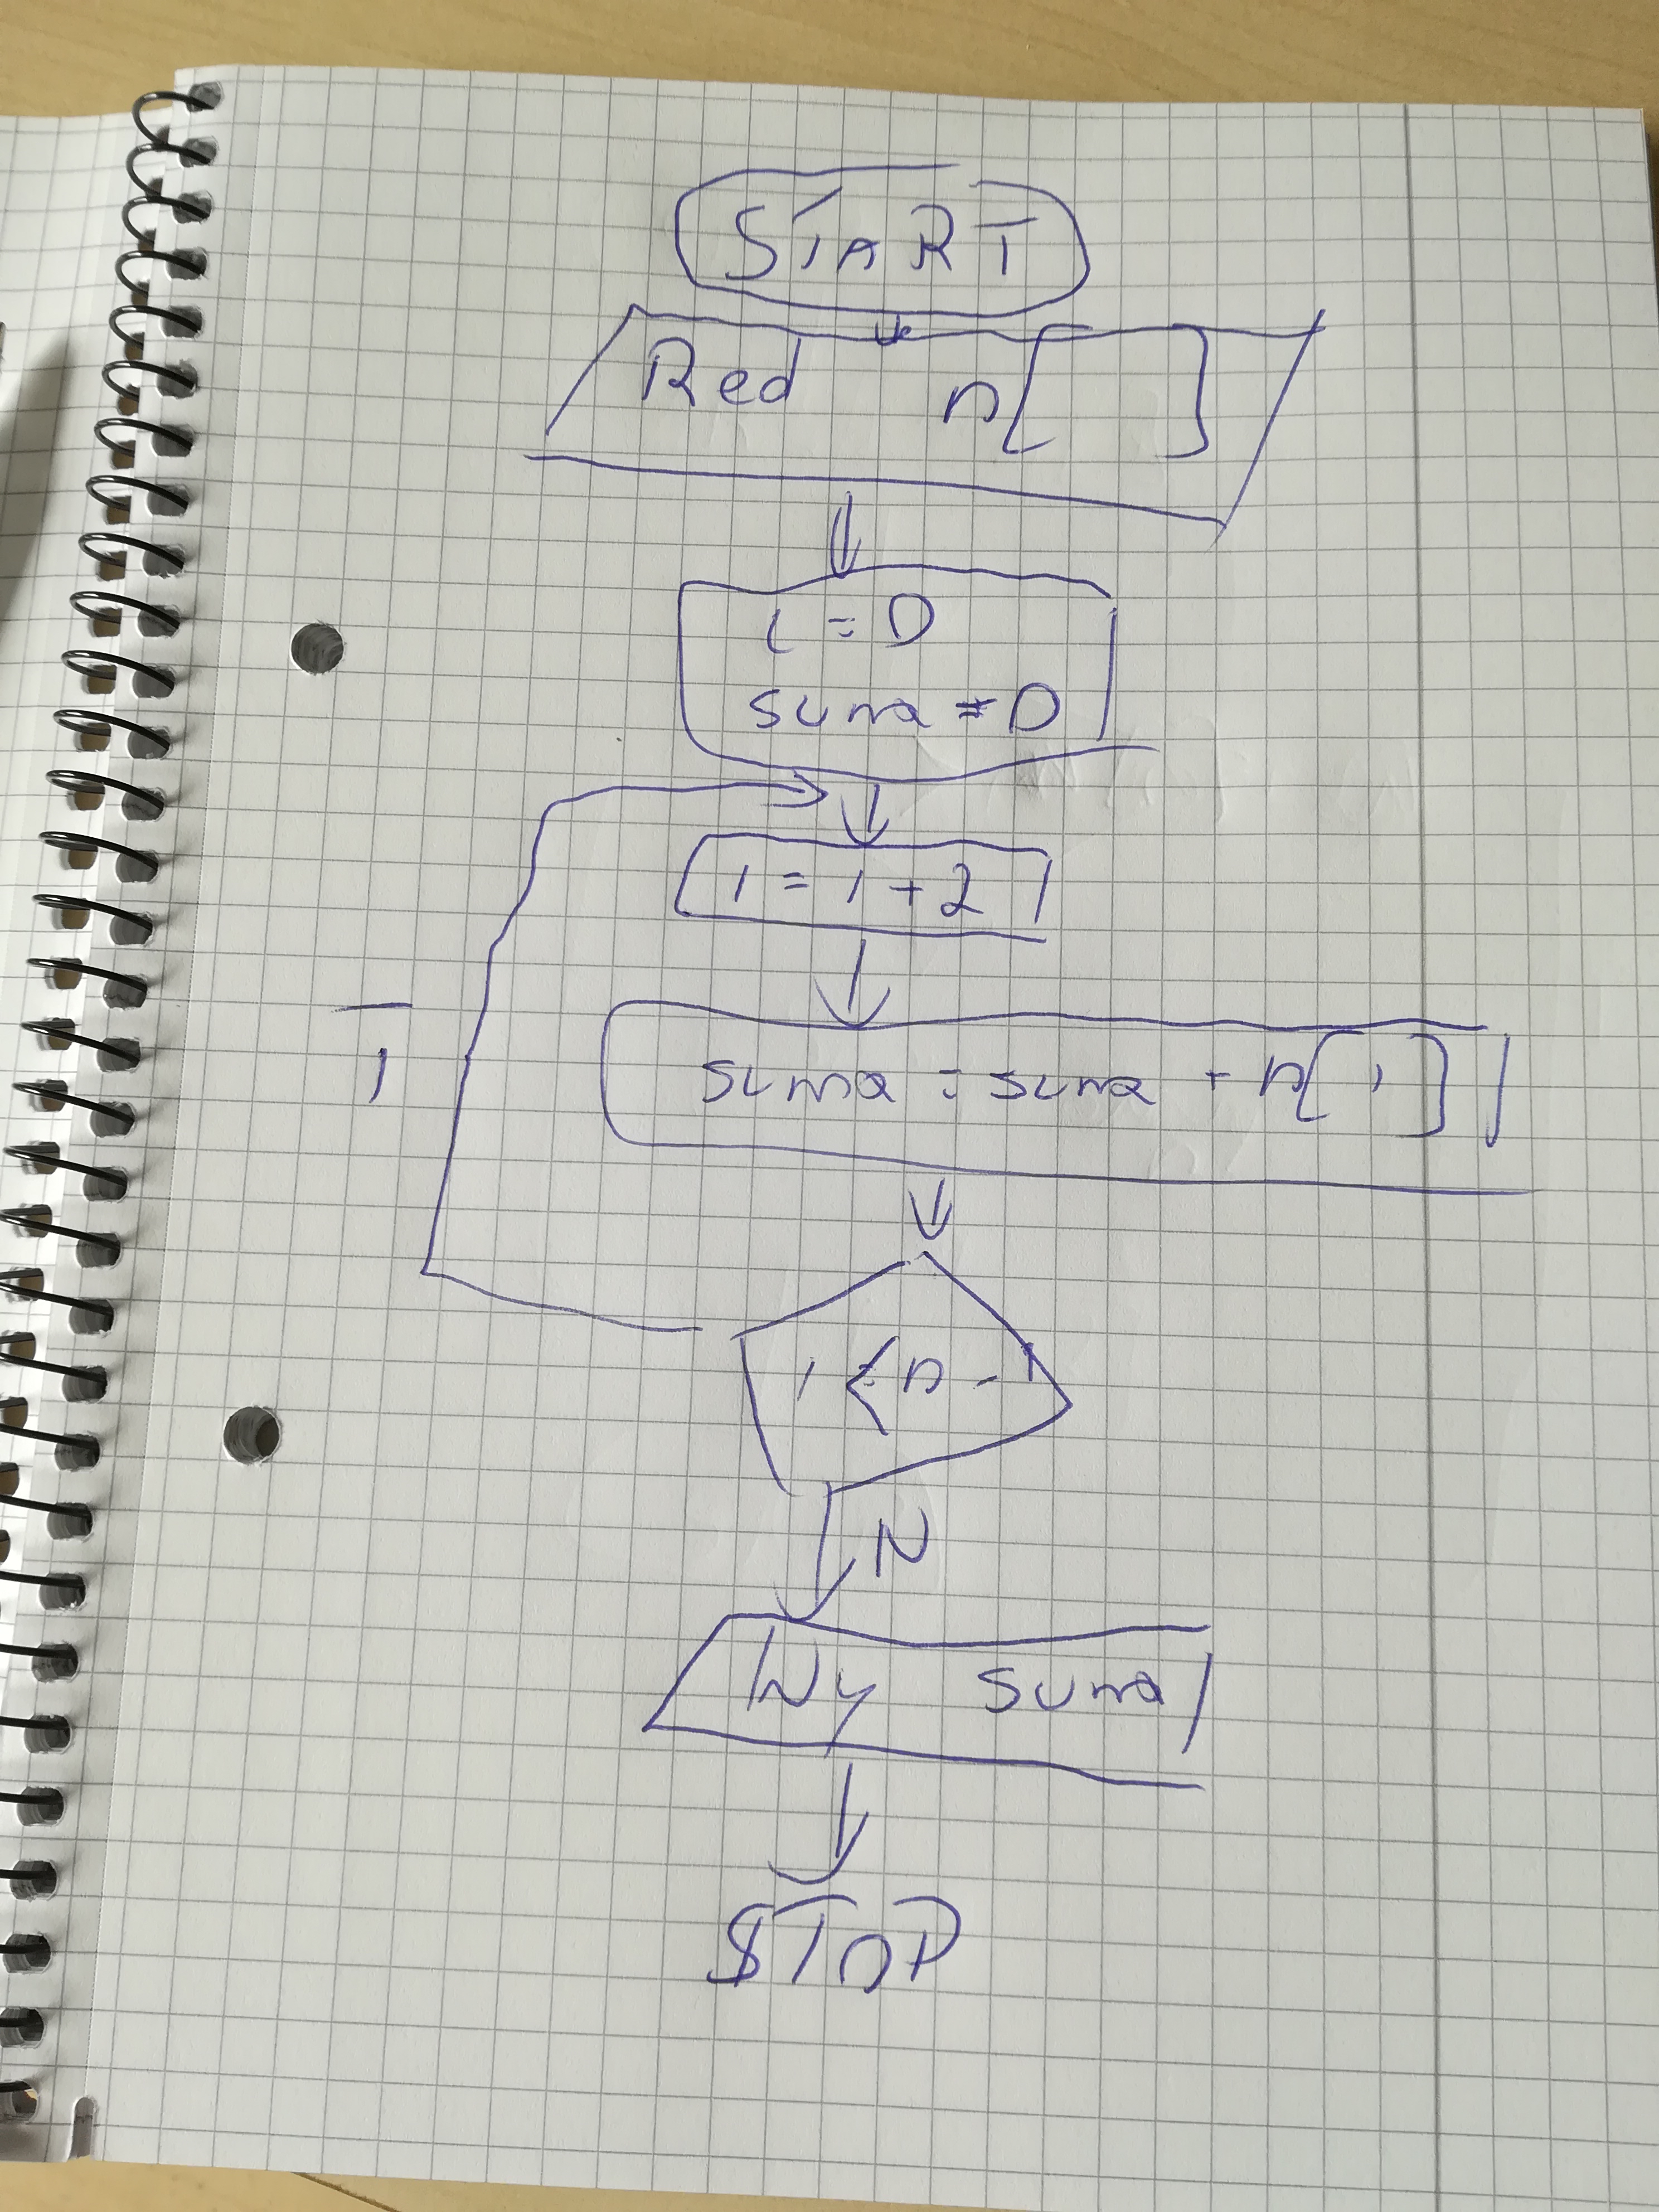 START
Red n[ ]
i = 0
suma = 0
i = i + 2
suma = suma + n[i]
T
i <= n - 1
N
Wy suma
STOP